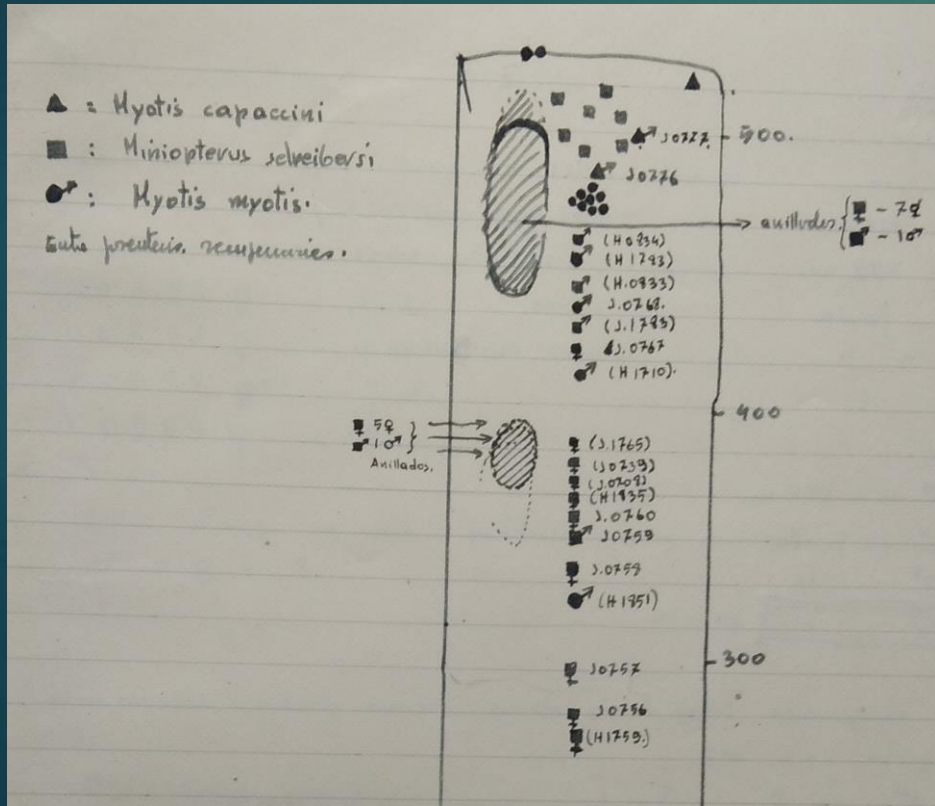 : Myotis capaccini
: Miniopterus schreibersi
: Myotis myotis.
Entre parentesis, recuperaciones.
J0777.
500.
J0776
anillados. { - 7♀
- 1♂
(H0834)
(H1793)
(H.0833)
J.0768.
(J.1783)
J.0767
(H1710).
400
5♀
1♂
Anillados.
(J.1765)
(J0739)
(J.0708)
(H1835)
J.0760
J0759
J.0758
(H1851)
300
J0757
J0756
(H1759.)